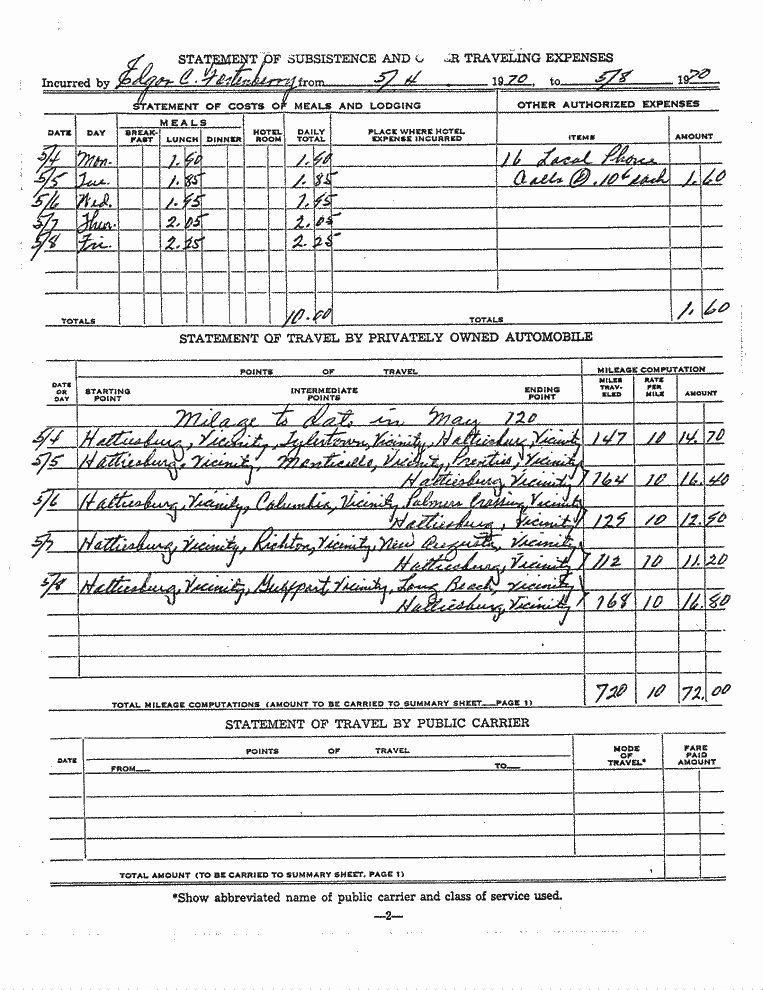 STATEMENT OF SUBSISTENCE AND O ER TRAVELING EXPENSES
Incurred by Edgar C. Fortenberry from 5/4 1970, to 5/8 1970
STATEMENT OF COSTS OF MEALS AND LODGING OTHER AUTHORIZED EXPENSES
DATE DAY MEALS BREAK-FAST LUNCH DINNER HOTEL ROOM DAILY TOTAL PLACE WHERE HOTEL EXPENSE INCURRED ITEMS AMOUNT
5/4 Mon. 1.90 1.90 16 Local Phone
5/5 Tue. 1.85 1.85 Calls @ .10¢ each 1.60
5/6 Wed. 1.95 1.95
5/7 Thur. 2.05 2.05
5/8 Fri. 2.25 2.25
TOTALS 10.00 TOTALS 1.60
STATEMENT OF TRAVEL BY PRIVATELY OWNED AUTOMOBILE
POINTS OF TRAVEL MILEAGE COMPUTATION
DATE OR DAY STARTING POINT INTERMEDIATE POINTS ENDING POINT MILES TRAV-ELED RATE PER MILE AMOUNT
Milage to date in May 720
5/4 Hattiesburg, Vicinity, Tylertown, Vicinity, Hattiesburg, Vicinity 147 10 14.70
5/5 Hattiesburg, Vicinity, Monticello, Vicinity, Prentiss, Vicinity
Hattiesburg Vicinity 164 10 16.40
5/6 Hattiesburg, Vicinity, Columbia, Vicinity, Palmers Crossing, Vicinity
Hattiesburg, Vicinity 129 10 12.90
5/7 Hattiesburg, Vicinity, Richton, Vicinity, New Augusta, Vicinity
Hattiesburg Vicinity 112 10 11.20
5/8 Hattiesburg, Vicinity, Gulfport, Vicinity, Long Beach, Vicinity
Hattiesburg, Vicinity 168 10 16.80
TOTAL MILEAGE COMPUTATIONS (AMOUNT TO BE CARRIED TO SUMMARY SHEET—PAGE 1) 720 10 72.00
STATEMENT OF TRAVEL BY PUBLIC CARRIER
DATE POINTS OF TRAVEL MODE OF TRAVEL* FARE PAID AMOUNT
FROM— TO—
TOTAL AMOUNT (TO BE CARRIED TO SUMMARY SHEET, PAGE 1)
*Show abbreviated name of public carrier and class of service used.
—2—